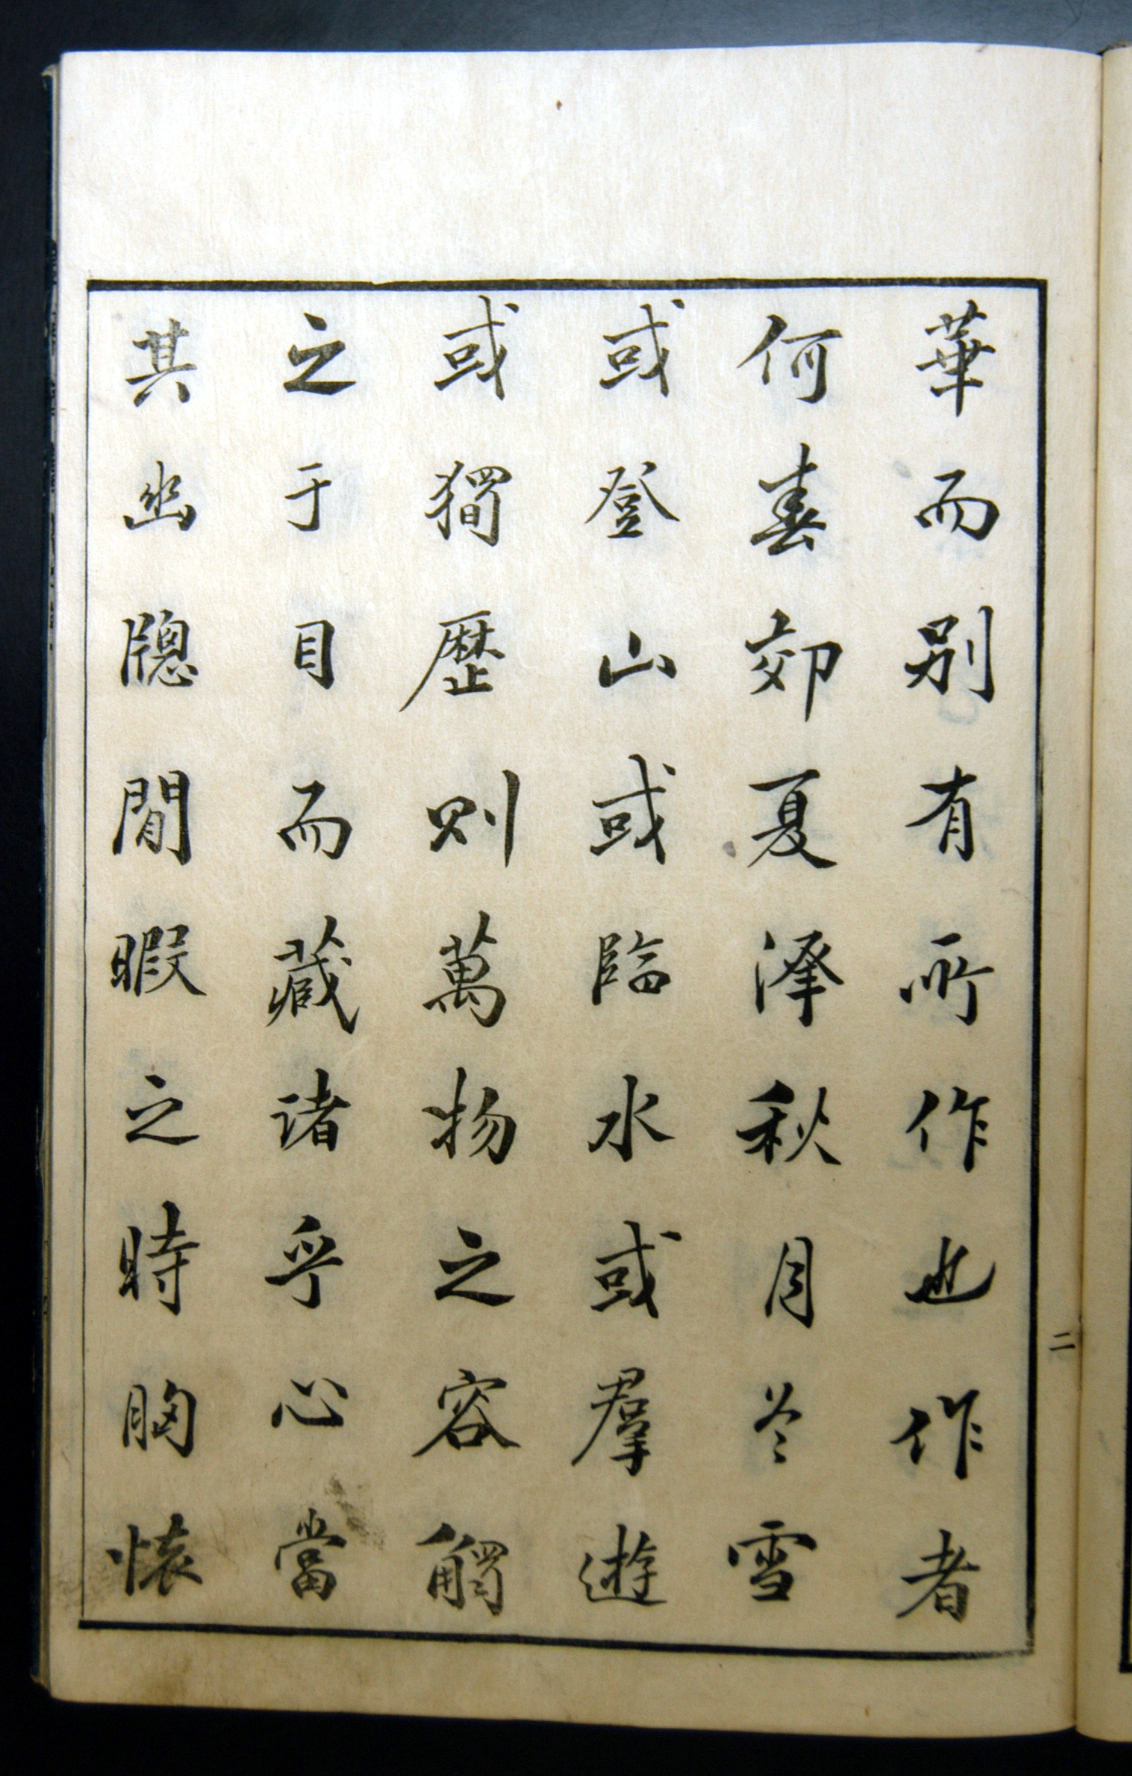 華而別有所作也作者
何春郊夏澤秋月冬雪
或登山或臨水或羣遊
或獨歷則萬物之容觸
之于目而藏諸乎心當
其幽牕閒暇之時胸懷
二